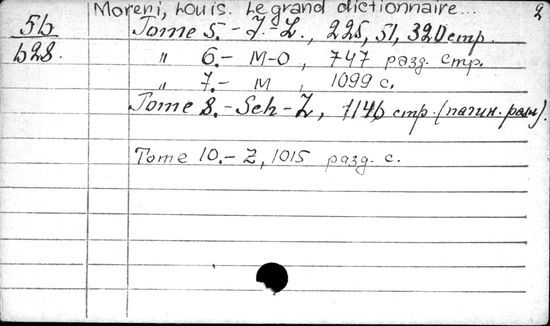 Moreri, Louis. Le grand dictionnaire... 2
5b Tome 5.- J.-L., 225, 51, 320 стр.
b28. " 6.- M-O, 747 разд. стр.
" 7.- M , 1099 с.
Tome 8.- Sch-Z, 1146 стр. (пагин. разн).
Tome 10.- Z, 1015 разд. с.